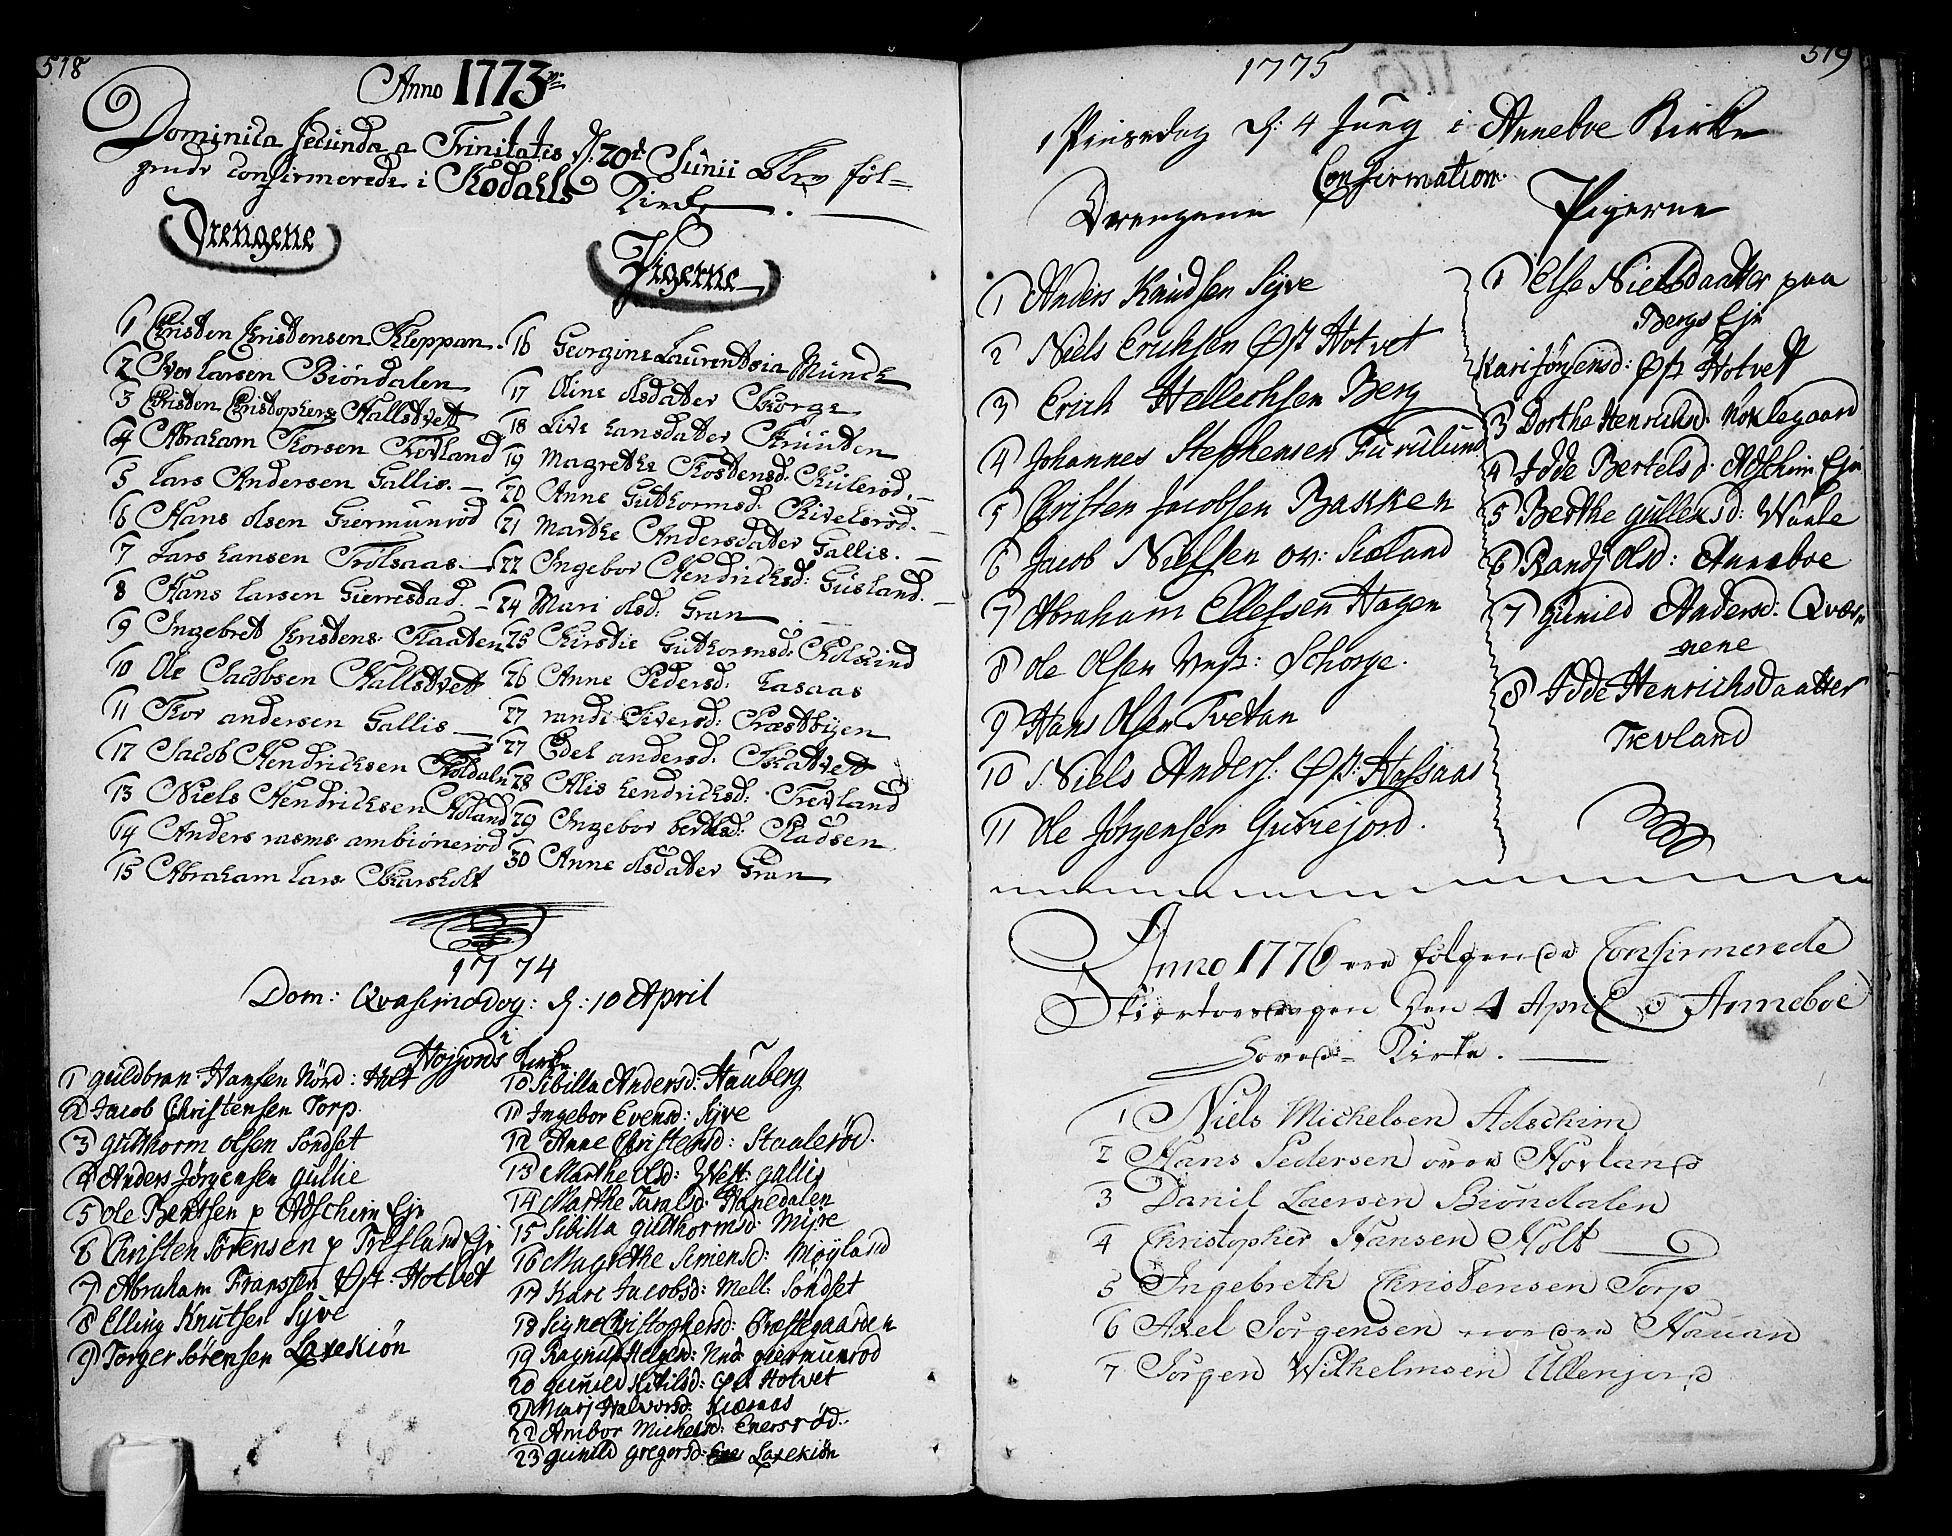 518
Anno 1773
Dominica secunda a Trinitatis d: 20de Junii blev føl=
gende confirmerede i Kodahls Kirke.
Drengene
1 Christen Christensen Kleppan
2 Iver Larsen Biöndalen
3 Christen Christophers Hallstvett
4 Abraham Thorsen Trevland
5 Lars Andersen Gallis.
6 Hans Olsen Giermünröd
7 Lars Hansen Trölsaas
8 Hans Larsen Gierrestad.
9 Ingebret Christens: Flaaten
10 Ole Jacobsen Hallstvett
11 Thor andersen Gallis
12 Jacob Hendricksen Choldaln
13 Niels Hendricksen Holand
14 Anders rasms ambiöneröd
15 Abraham Lars Skarsholt
Pigerne
16 Georgine Laurentzia Münch
17 Oline Olsdatter Skorge
18 Live Hansdatter Skrünten
19 Magrethe Tostensd. Kuleröd.
20 Anne Guthormsd. Rivelsröd.
21 Marthe Andersdatter Gallis.
22 Ingebor Hendricksd: Gusland.
24 Mari Olsd: Gran
25 Kirstie Guthormsd:
26 Anne Pedersd: Lasaas
27 randi Siversd: Præstbÿen
27 Edel andersd. Skattvett
28 Alis Hendricksd: Trevland
29 Ingebor bertelsd: Pladsen
30 Anne Olsdatter Gran
1774
Dom: Qvasimodog: d: 10 April
i
Höijords Kirke
1 guldbran: Hansen Nörd: Holt
2 Jacob Christensen Torp
3 Gutthorm Olsen Söndset
4 Anders Jörgensen Gullie
5 Ole Bentsen p Adschim Eje
6 Christen Sörensen p Trefland Eje
7 Abraham Franssen Øst: Hotvet
8 Elling Knutsen Syve
9 Torger Sörensen Laxekiön
10 Sibilla Andersd: Hauberg
11 Ingebor Evensd: Syve
12 Anne Christensd: Staaleröd.
13 Marthe Olsd: West: Gallis
14 Marthe Taralsd: Hanedalen
15 Sibilla Gutthormsd: Miire
16 Magrethe Simensd: Möyland
17 Kari Jacobsd: Mell: Söndset
18 Signe Christophersd: Præstegaarden
19 Ragnild Helgesd: Ned: Giermunröd
20 Gunild Ketilsd: Øst Hotvet
21 Marj Halvorsd: Kieraas
22 Ambor Michelsd: Enersröd.
23 Gunild Gregersd: Laxekiön
519
1775
1 Pinsedag d: 4 Juny i Anneboe Kirke
Confirmation.
Drengene
1 Anders Knudsen Syve
2 Niels Erichsen Øst Hotvet
3 Erich Hellechsen Berg
4 Johannes Stephensen Furulund
5 Christen Jacobsen Bakken
6 Jacob Nielsen ov: Skeland
7 Abraham Ellefsen Hagen
8 Ole Olsen Vest: Schorge.
9 Hans Olsen Tvetan
10 Niels Anders: Øst: Hassaas
11 Ole Jörgensen Guriejord.
Pigerne
1 Else Nielsdaatter paa
Bergs Eje
Kari Jörgensd: Øst Hotvet
3 Dorthe Henrichsd. Noklegaard
4 Idde Bertelsd. Adschim Eje
5 Berthe gullexsd: Waale
6 Randj Olsd: Anneboe
7 Gunild Andersd: Qvær=
nene
8 Idde Henrichsdaatter
Trevland
Anno 1776 ere følgende Confirmerede
Skiertorsdagen den 4 April i Anneboe
Hoved= Kirke.
1 Niels Michelsen Adschim
2 Hans Pedersen over Hovland
3 Danil Laersen Biöndalen
4 Christopher Hansen Holt
5 Ingebreth Christensen Torp
6 Axel Jörgensen nordre Hauan
7 Jörgen Wilhelmsen Ullenjord